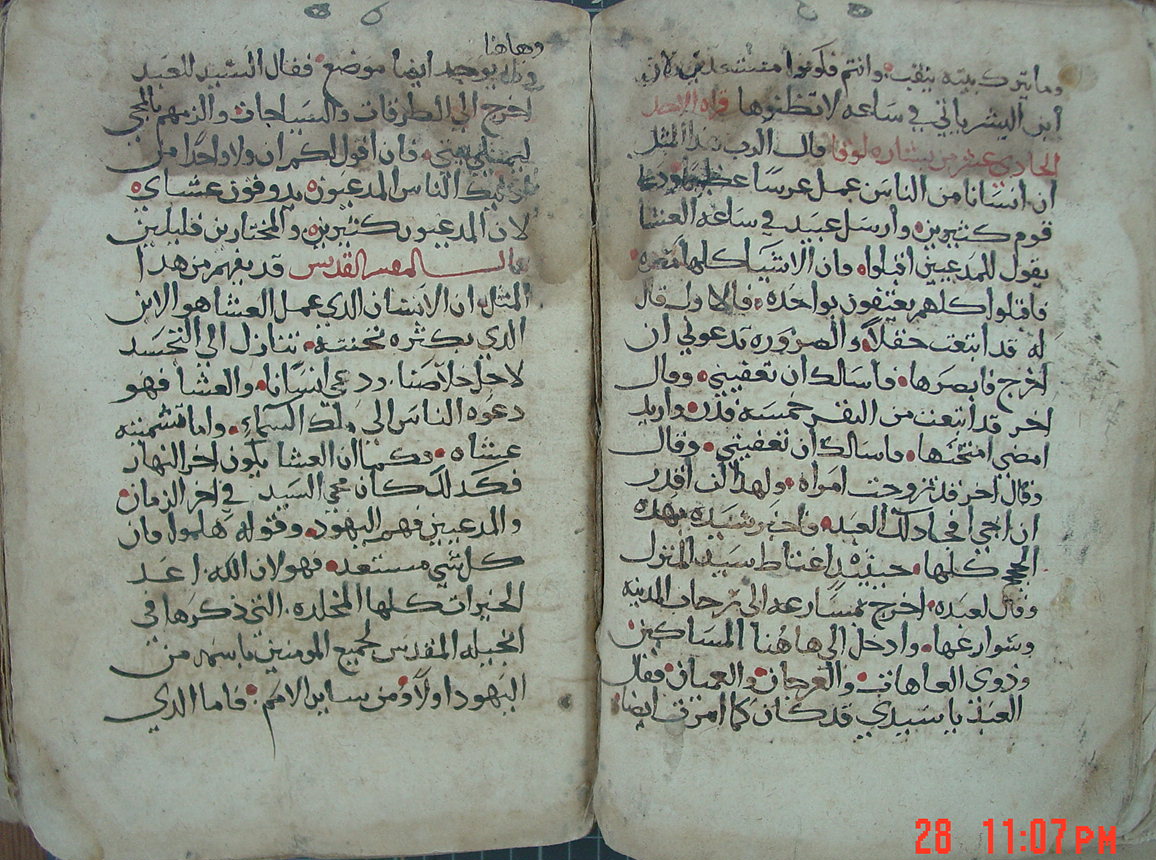 وما يترك بيته ينقب. وانتم فكونوا مستعدين لان
ابن البشر ياتي في ساعه لا تظنوها قراه الاحد
الحادي عشر من بشاره لوقا قال الرب هذا المثل
ان انسانا من الناس عمل عرسا عظيما ودعا
قوم كثيرين. وارسل عبيده في ساعه العشا
يقول للمدعيين اقبلوا. فان الاشيا كلها
فاقبلوا كلهم يعتفون بواحده. فالاول قال
له قد ابتعت حقلا. والضروره تدعوني ان
اخرج فابصرها. فاسالك ان تعفيني. وقال
اخر قد ابتعت من البقر خمسه فدن. واريد
امضي امتحنها. فاسالك ان تعفيني. وقال
وقال اخر قد تزوجت امراه. ولهذا لن اقدر
ان اجي. فجا دلك العبد. فاخبر سيده بهذه
كلها. حينيذ اغتاط سيد المنزل
وقال لعبده. اخرج مسارعه الى رحاب المدينه
وشوارعها. وادخل الى هاهنا المساكين
وذوي العاهات. والعرجان. والعميان. فقال
العبد يا سيدي قد كان كما امرت. ايضا
وهاهنا
يوجد ايضا موضع. فقال السيد للعبد
اخرج الي الطرقات والسياجات. والزمهم بالمجي
ليمتلي بيتي. فان اقول لكم ان ولا واحدا من
اوليك الناس المدعيون. يدوقون عشاي.
لان المدعيون كثيرين. والمختارين قليلين
المفسر القديس قد يفهم من هدا
المثل. ان الانسان الدي عمل العشا هو الابن
الدي بكثره تحننه. تنازل الي التجسد
لاجل خلاصنا. ودعي انسانا. والعشا فهو
دعوه الناس الي ملك السماء. واما تسميته
عشا. وكما ان العشا يكون اخر النهار
فكدلك كان مجي السيد في اخر الزمان.
والمدعيين فهم اليهود. وقوله هلموا فان
كل شي مستعد. فهو لان الله اعد
الخيرات كلها المخلده. التي ذكرها في
انجيله المقدس لجميع المومنين باسمه من
اليهود اولا. ومن ساير الامم. فاما الدي
28 11:07 PM